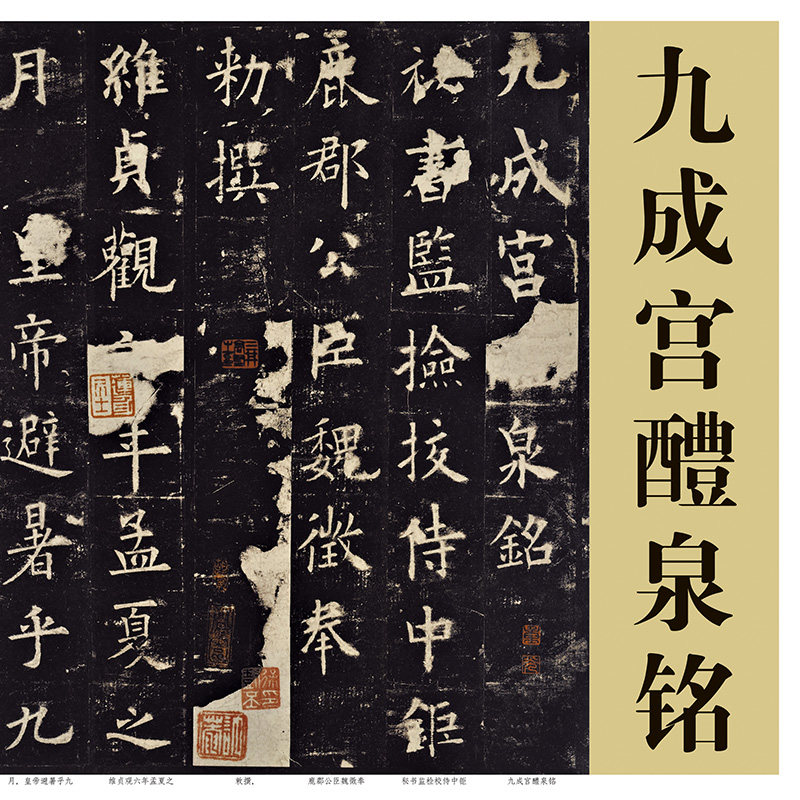 九成宫醴泉铭
九成宮泉銘
祕書監撿挍侍中鉅
鹿郡公臣魏徵奉
勑撰
維貞觀年孟夏之
月皇帝避暑乎九
九成宫醴泉铭
秘书监检校侍中钜
鹿郡公臣魏徵奉
敕撰。
维贞观六年孟夏之
月，皇帝避暑乎九